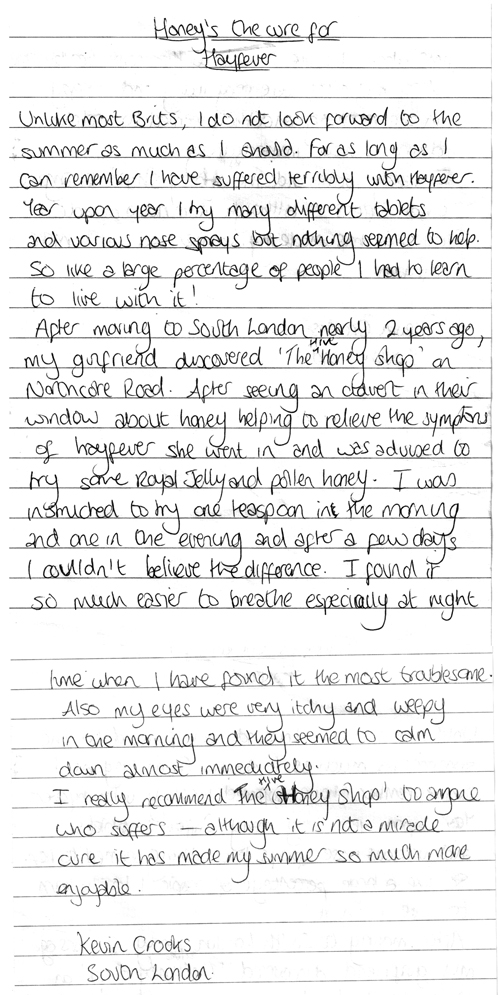 Honey's the cure for
Hayfever
Unlike most Brits, I do not look forward to the
summer as much as I should. For as long as I
can remember I have suffered terribly with Hayfever.
Year upon year I try many different tablets
and various nose sprays but nothing seemed to help.
So like a large percentage of people I had to learn
to live with it!
After moving to South London nearly 2 years ago,
my girlfriend discovered 'The Hive Honey Shop' on
Northcote Road. After seeing an advert in their
window about honey helping to relieve the symptoms
of hayfever she went in and was advised to
try some Royal Jelly and pollen honey. I was
instructed to try one teaspoon in the morning
and one in the evening and after a few days
I couldn't believe the difference. I found it
so much easier to breathe especially at night
time when I have found it the most troublesome.
Also my eyes were very itchy and weepy
in the morning and they seemed to calm
down almost immediately.
I really recommend 'The Hive Honey Shop' to anyone
who suffers – although it is not a miracle
cure it has made my summer so much more
enjoyable.
Kevin Crooks
South London.